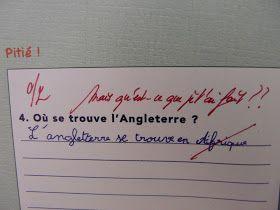 Pitié !
0/2 Mais qu'est-ce que je t'ai fait ??
4. Où se trouve l'Angleterre ?
L'angleterre se trouve en Afrique